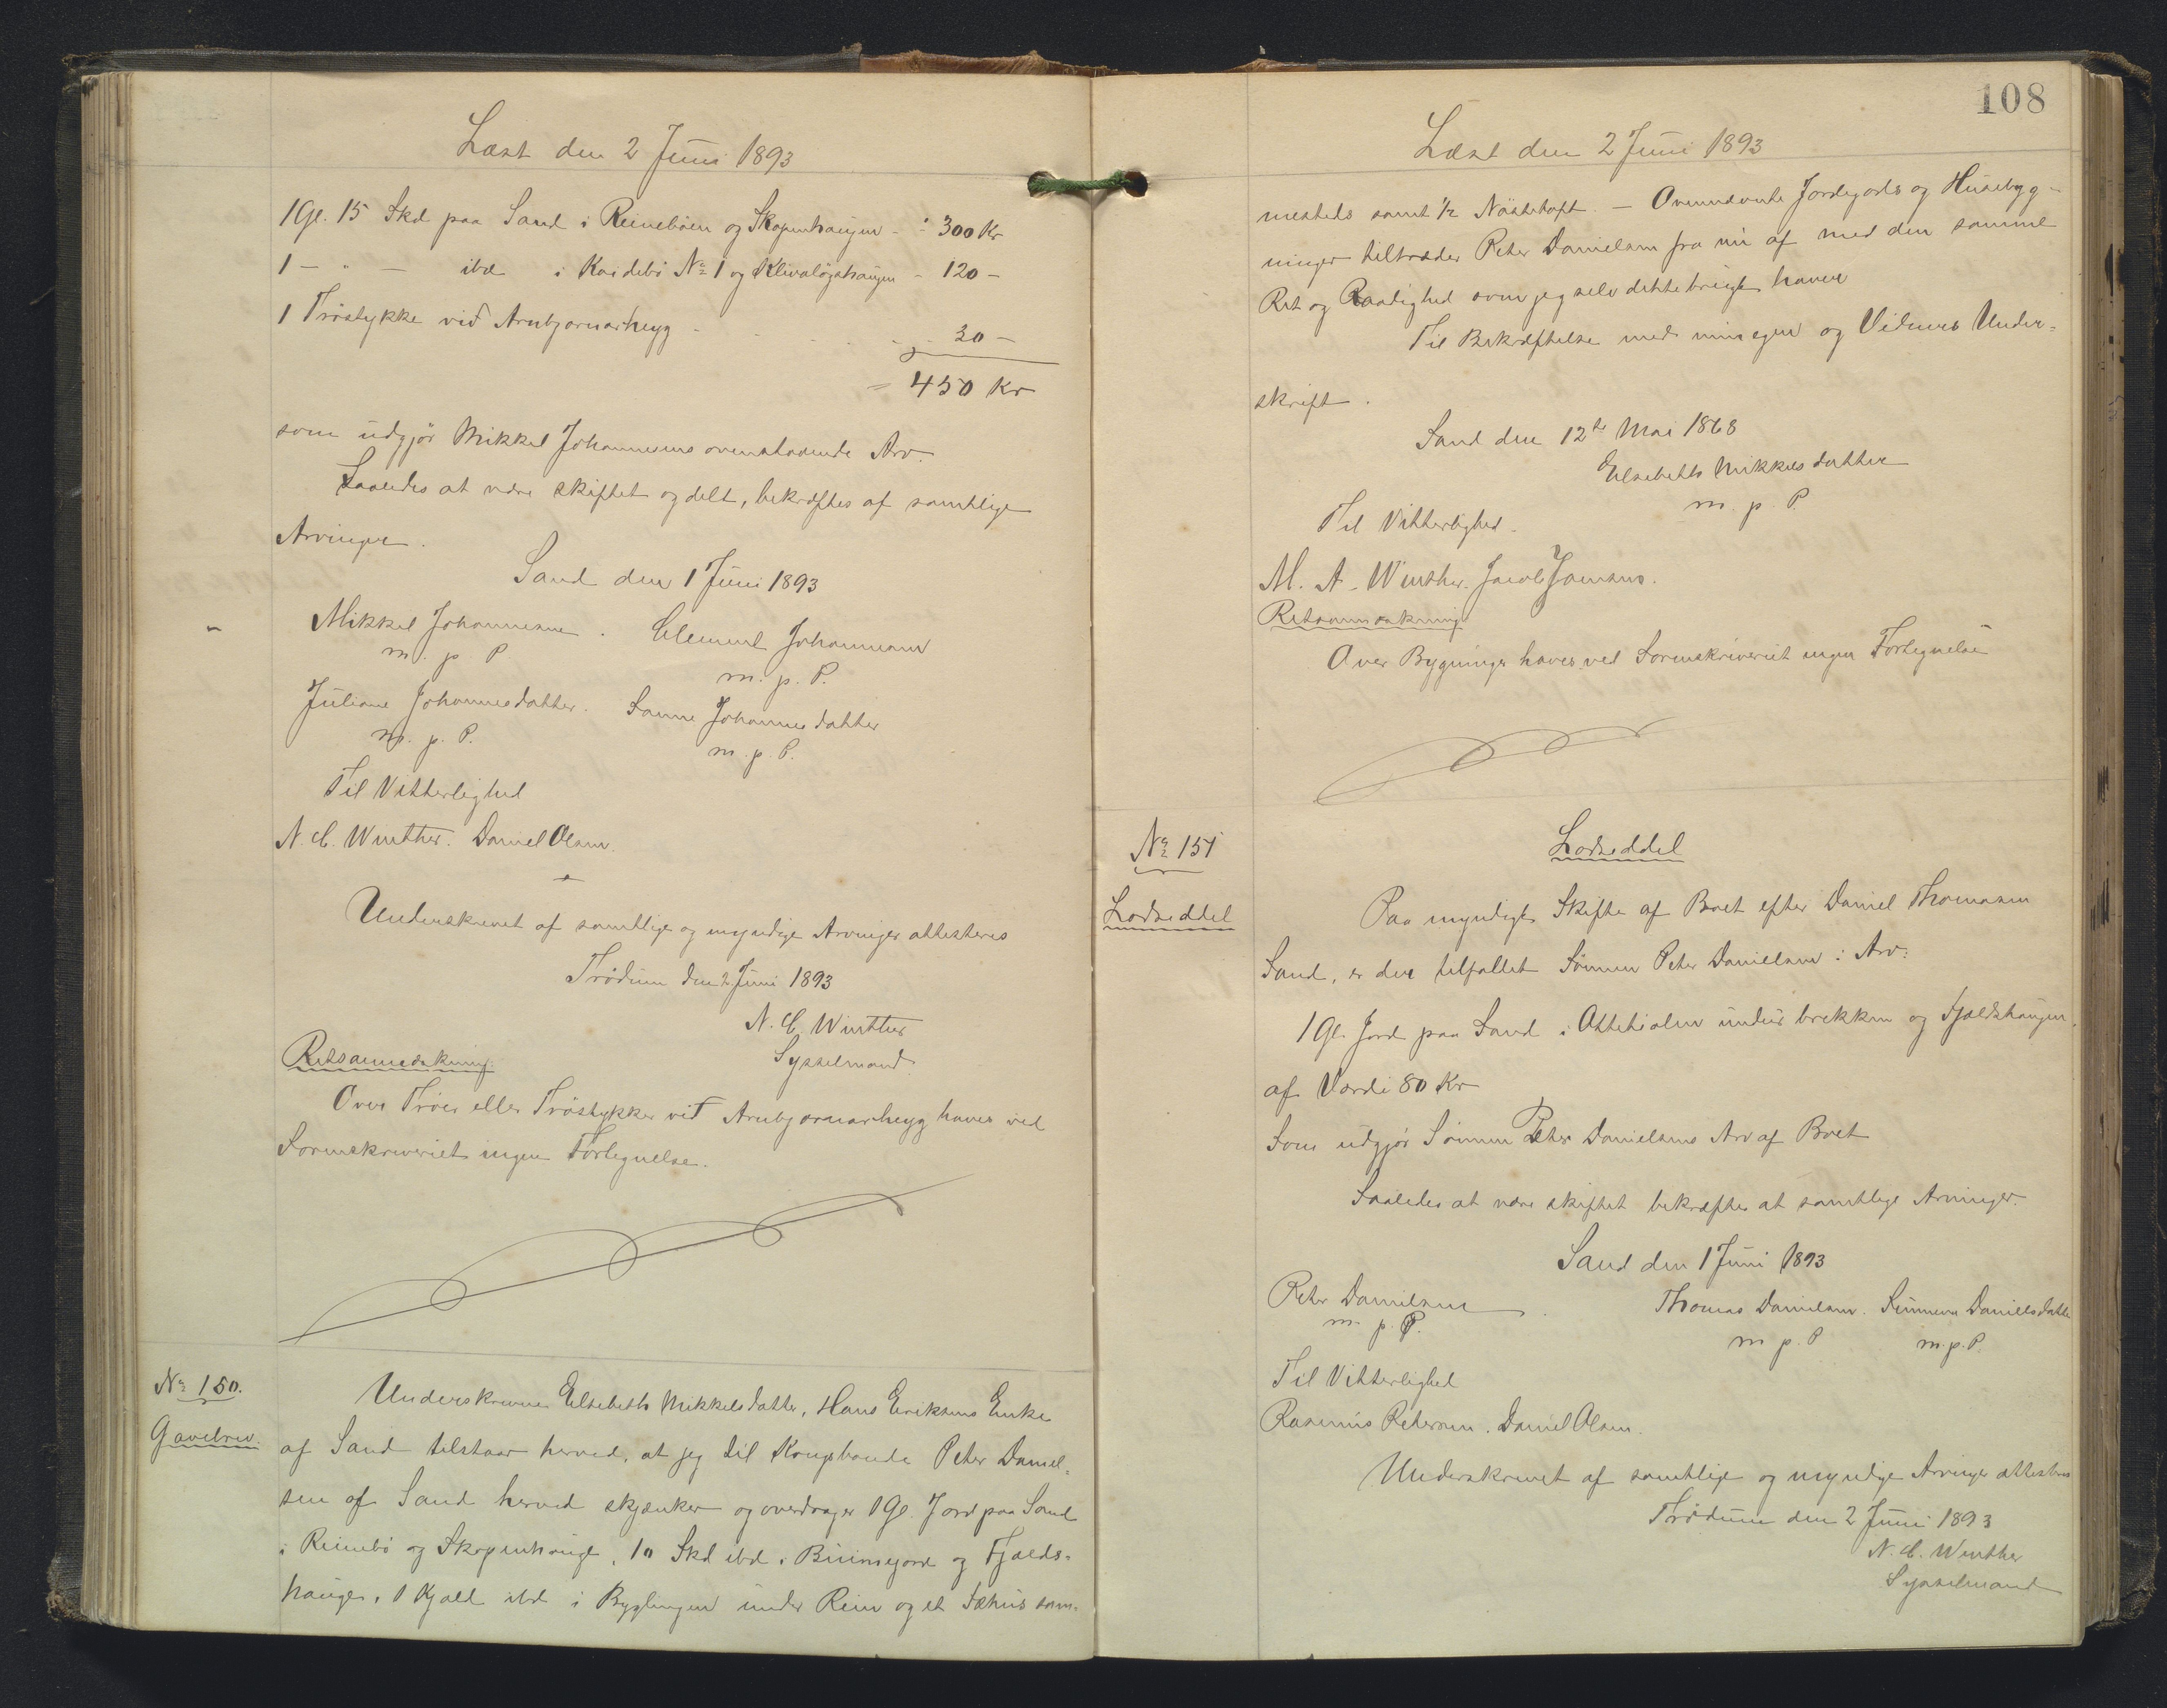 Læst den 2 Juni 1893
1 Gl. 15 Skd paa Sand i Reineböen og Skopenhaugen - : 300 Kr
1 - " - ibd i Kvidebö No 1 og Klivalögshaugen - 120 -
1 Tröstykke við Arnbjornarheyg - . . . . 30 -
= 450 Kr
som udgjör Mikkel Johannesens ovenstaaende Arv.
Saaledes at være skiftet og delt, bekræftes af samtlige
Arvinger.
Sand den 1 Juni 1893
Mikkel Johannesen . Clement Johannesen
m. p. P m. p. P.
Juliane Johannesdatter. Sanne Johannesdatter
m. p. P. m. p. P.
Til Vitterlighed
N. C. Winther. Daniel Olsen.
Underskrevet af samtlige og myndige Arvinger attesteres
Trödum den 2 Juni 1893
N. C. Winther
Sysselmand
Retsanmærkning:
Over Tröer eller Tröstykker við Arnbjornarheyg haves ved
Sorenskriveriet ingen Fortegnelse.
No 150.
Gavebrev.
Underskrevne Elsebeth Mikkelsdatter, Hans Eriksens Enke
af Sand tilstaar herved, at jeg til Kongsbonde Peter Daniel-
sen af Sand herved skjænker og overdrager 1 Gl. Jord paa Sand
i Reinebö og Skopenhauge, 10 Skd ibd i og Fjælds-
hauge, 1 Hjald ibd i Byglingen under Rein og et Fæhus sam-
108
Læst den 2 Juni 1893
mesteds samt 1/2 Nöstetoft. - Ovennævnte Jordegods og Husebyg-
ninger tiltræder Peter Danielsen fra nu af med den samme
Ret og Raadighed som jeg selv dette brugt haver
Til Bekræftelse med min egen og Vidners Under-
skrift.
Sand den 12te Mai 1868
Elsebeth Mikkelsdatter
m. p. P.
Til Vitterlighed.
M. A. Winther. Jacob Joensen.
Retsanmærkning
Over Bygninger haves ved Sorenskriveriet ingen Fortegnelse
No 151
Lodseddel
Lodseddel
Paa myndigt Skifte af Boet efter Daniel Thomasen
Sand, er der tilfaldet Sönnen Peter Danielsen i Arv:
1 Gl. Jord paa Sand i under brekken og Fjældshaugen,
af Værdi 80 Kr
Som udgjör Sönnen Peter Danielsens Arv af Boet
Saaledes at være skiftet bekræftes at samtlige Arvinger.
Sand den 1 Juni 1893
Peter Danielsen . Thomas Danielsen. Sunneva Danielsdatter
m. p. P. m p. P m. p. P.
Til Vitterlighed
Rasmus Petersen. Daniel Olsen.
Underskrevet af samtlige og myndige Arvinger attesteres
Trödum den 2 Juni 1893
N. C. Winther
Sysselmand